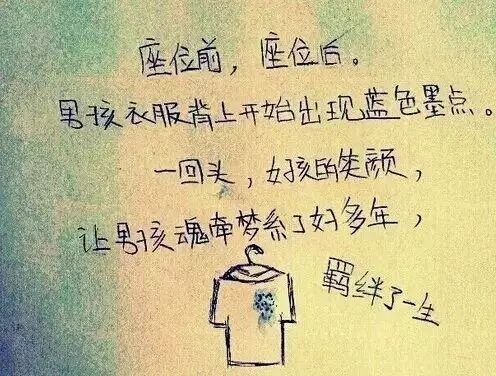 座位前，座位后。
男孩衣服背上开始出现蓝色墨点。
一回头，女孩的笑颜，
让男孩魂牵梦系了好多年，
羁绊了一生